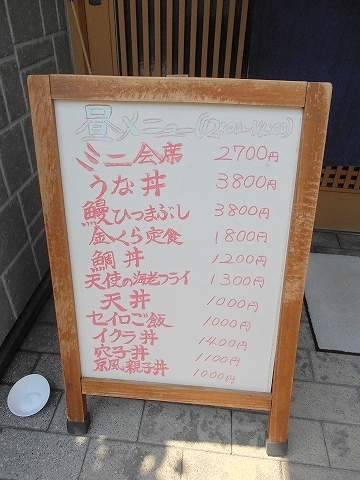 昼メニュー(12:00~14:00)
ミニ会席 2700円
うな丼 3800円
鰻ひつまぶし 3800円
金くら定食 1800円
鯛丼 1200円
天使の海老フライ 1300円
天丼 1000円
セイロご飯 1000円
イクラ丼 1400円
穴子丼 1100円
京風親子丼 1000円